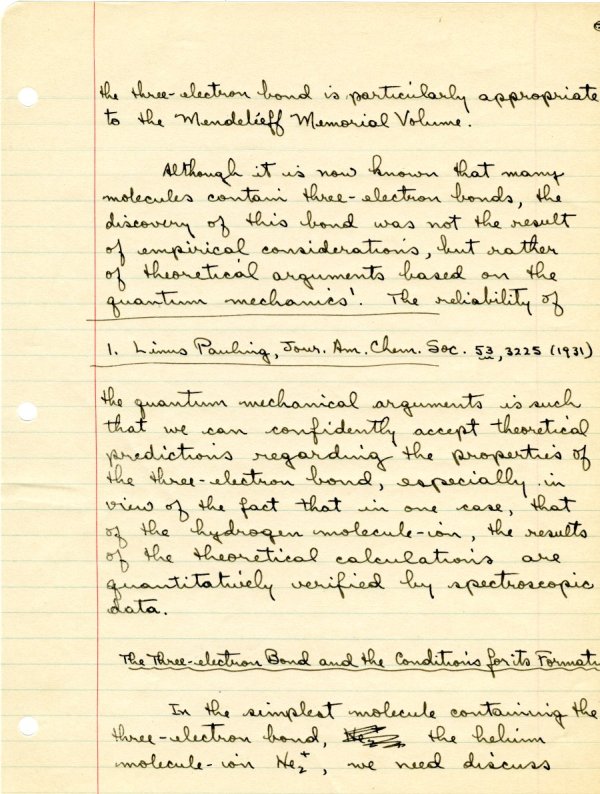 the three-electron bond is particularly appropriate
to the Mendelieff Memorial Volume.
Although it is now known that many
molecules contain three-electron bonds, the
discovery of this bond was not the result
of empirical considerations, but rather
of theoretical arguments based on the
quantum mechanics¹. The reliability of
1. Linus Pauling, Jour. Am. Chem. Soc. 53, 3225 (1931)
the quantum mechanical arguments is such
that we can confidently accept theoretical
predictions regarding the properties of
the three-electron bond, especially in
view of the fact that in one case, that
of the hydrogen molecule-ion, the results
of the theoretical calculations are
quantitatively verified by spectroscopic
data.
The Three-electron Bond and the Conditions for its Formati
In the simplest molecule containing the
three-electron bond, the helium
molecule-ion He₂⁺, we need discuss